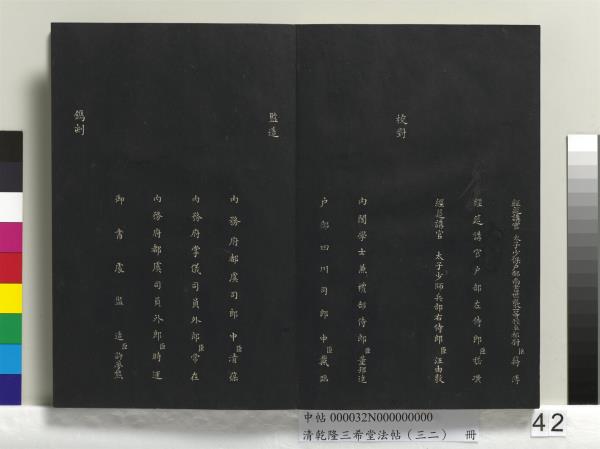 經筵講官 太子少保戶部尚書世襲三等輕車都尉臣蔣溥
經筵講官戶部左侍郎臣嵇璜
校對
經筵講官 太子少師兵部右侍郎臣汪由敦
內閣學士兼禮部侍郎臣董邦達
戶部四川司郎中臣戴臨
監造
內務府都虞司郎中臣清葆
內務府掌儀司員外郎臣常在
內務府都虞司員外郎臣時運
御書處監造臣許夢熊
鐫刻
中帖 000032N000000000
42
清乾隆三希堂法帖(三二) 冊